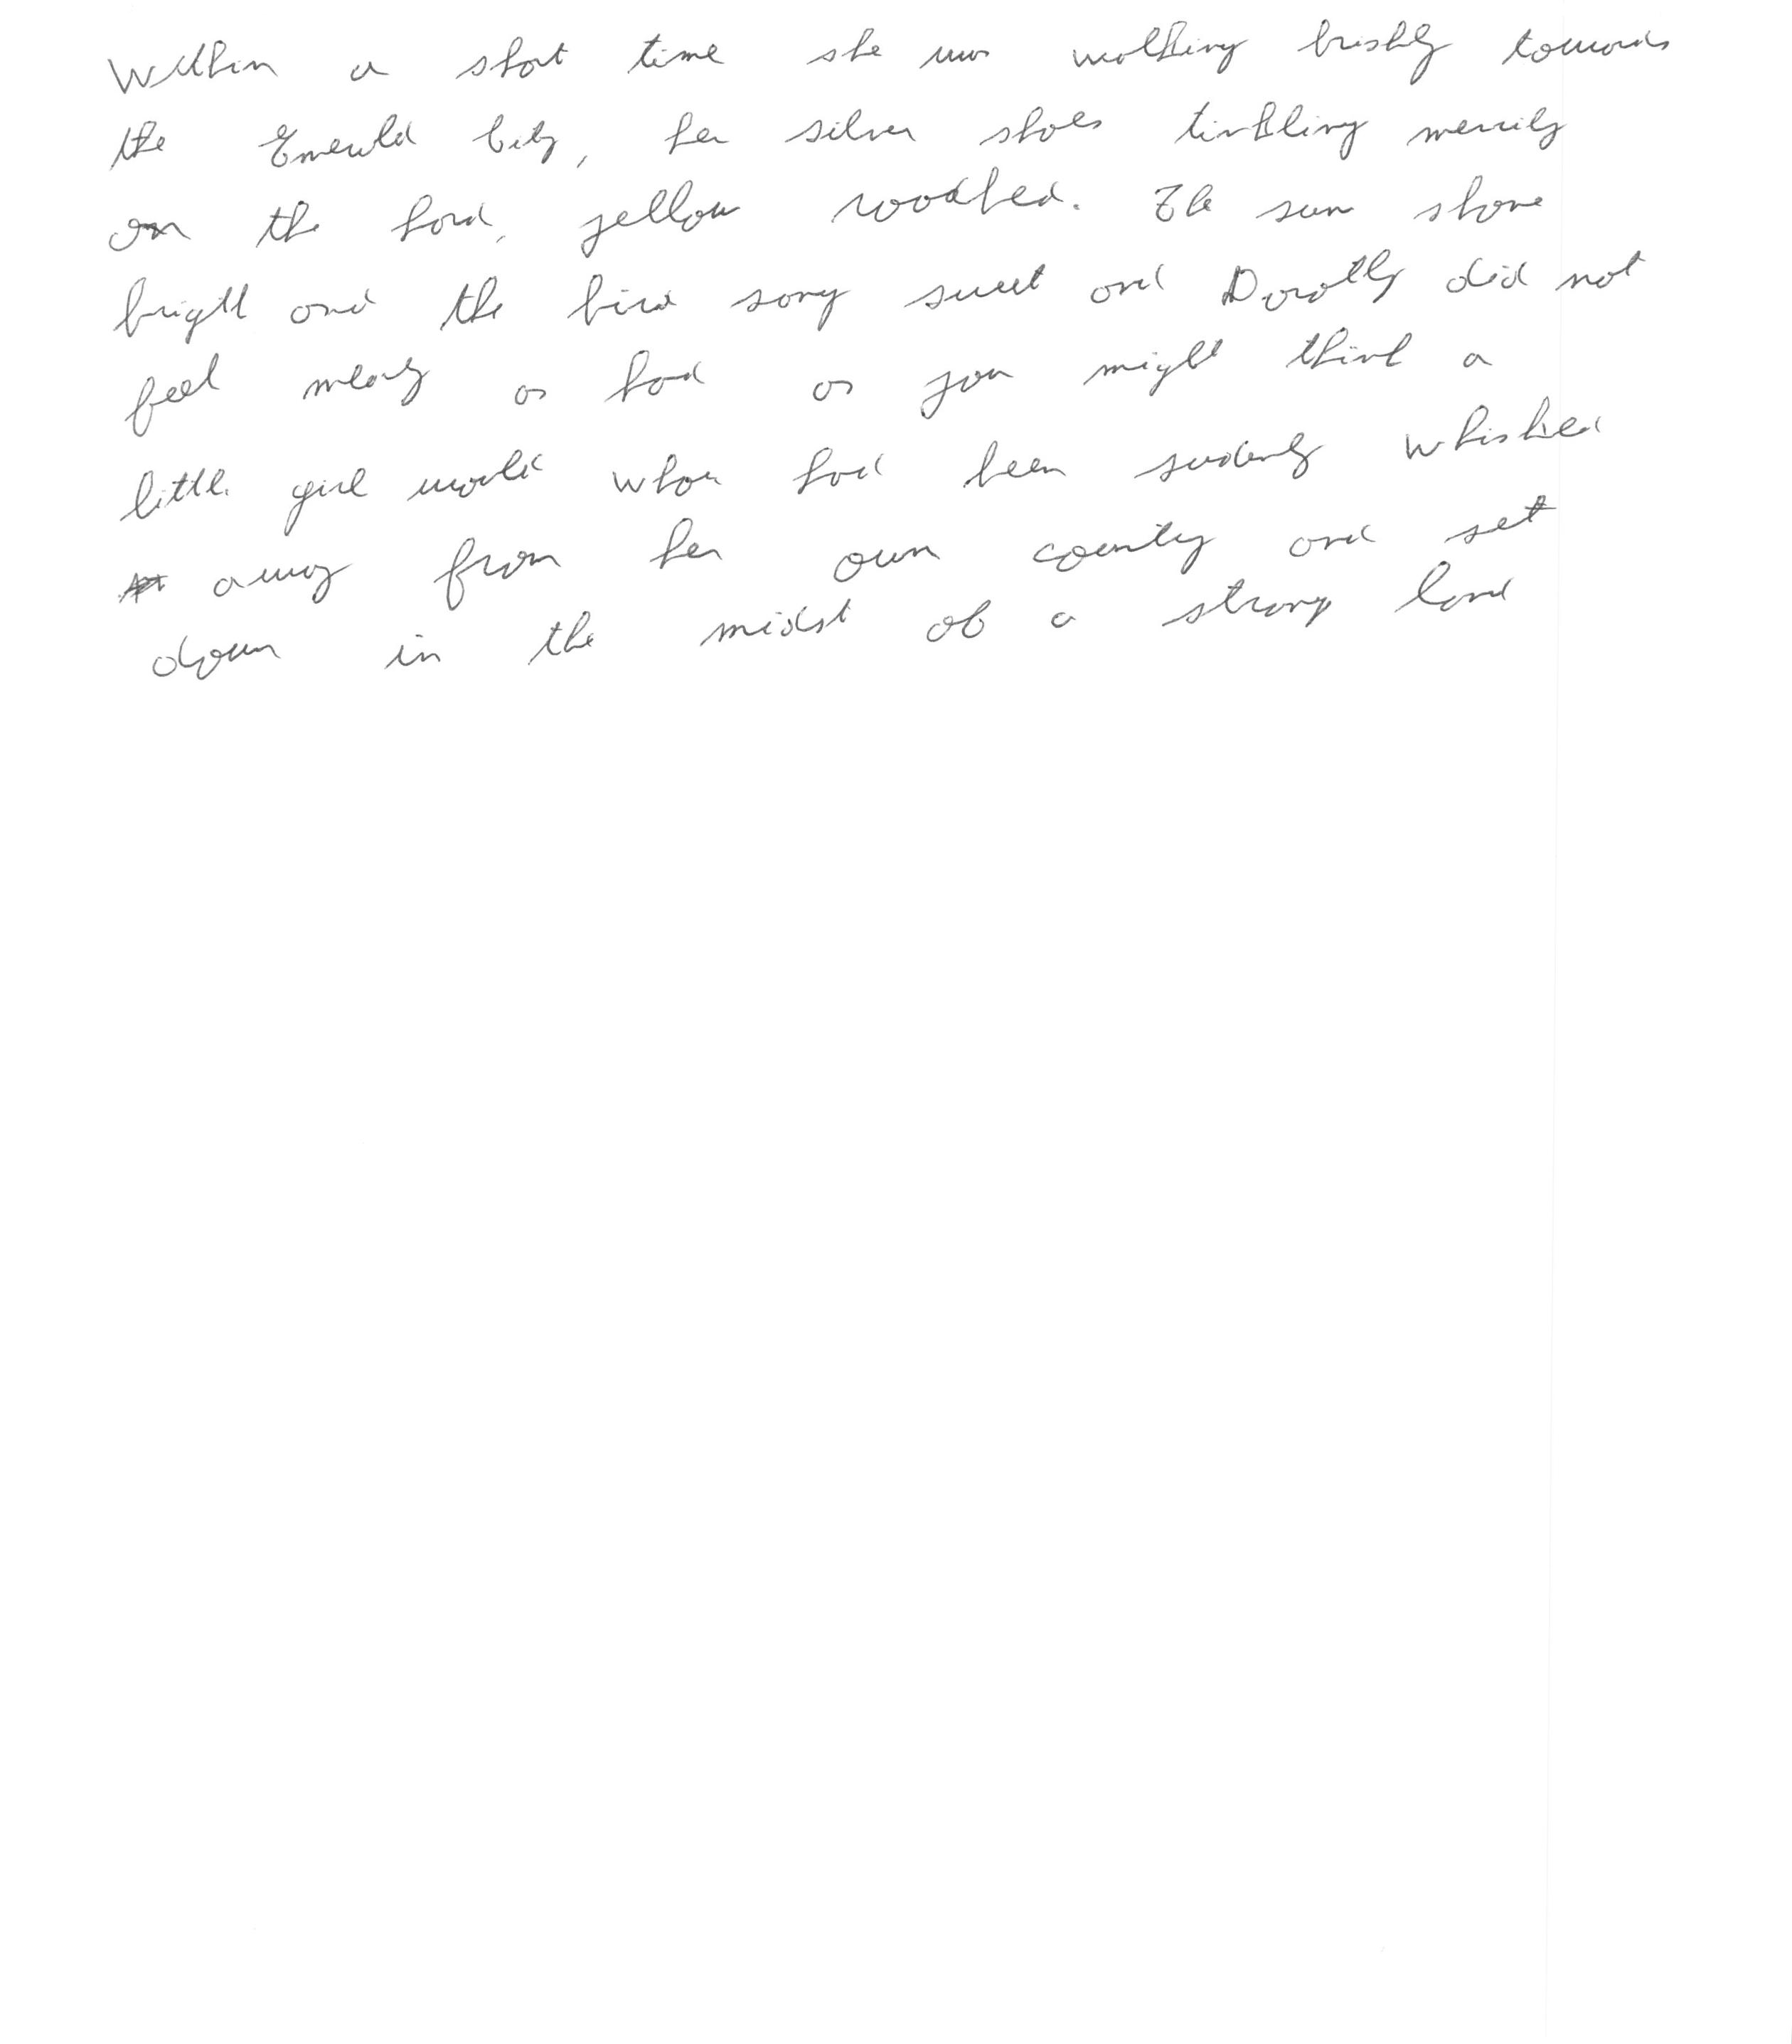 Within a short time she was walking briskly towards
the Emerald City, her silver shoes tinkling merrily
on the hard, yellow roadbed. The sun shone
bright and the bird song sweet and Dorothy did not
feel nearly as bad as you might think a
little girl would whou had been suddenly whisked
away from her own country and set
down in the midst of a strang land